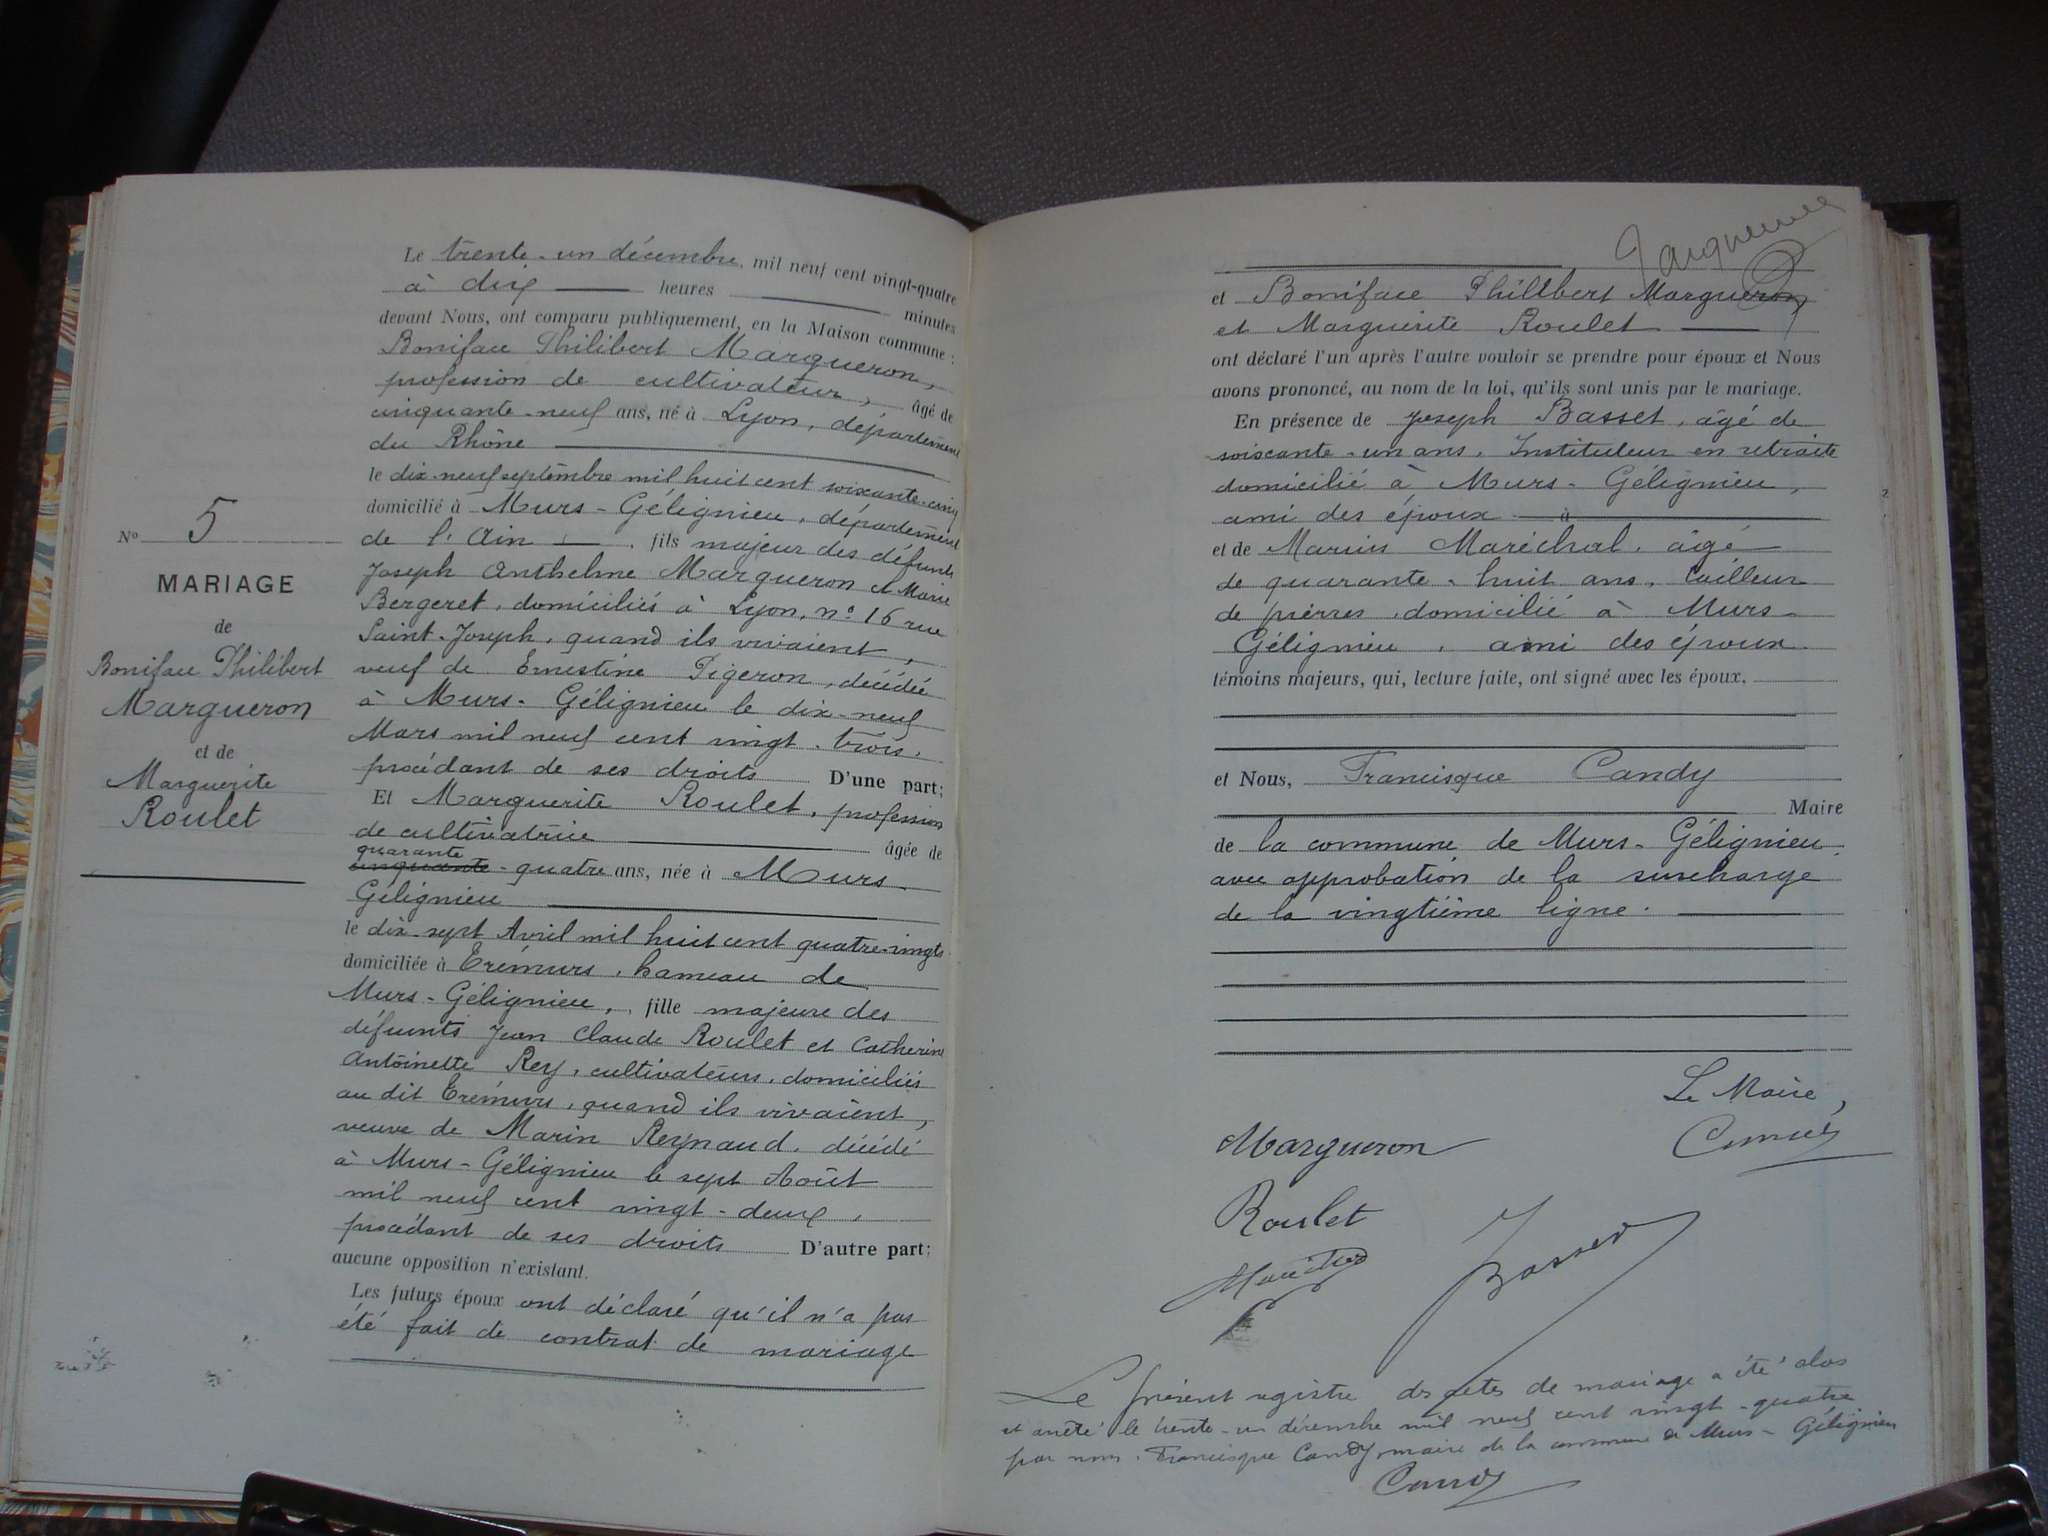 Le trente-un décembre, mil neuf cent vingt-quatre
à dix heures minutes
devant Nous, ont comparu publiquement, en la Maison commune :
Boniface Philibert Margueron,
profession de cultivateur, âgé de
cinquante-neuf ans, né à Lyon, département
du Rhône
le dix-neuf septembre mil huit cent soixante-cinq
domicilié à Murs-Gélignieu, département
de l'Ain, fils majeur des défunts
Joseph Anthelme Margueron et Marie
Bergeret, domiciliés à Lyon, n° 16 rue
Saint-Joseph, quand ils vivaient,
veuf de Ernestine Pigeron, décédée
à Murs-Gélignieu le dix-neuf
Mars mil neuf cent vingt-trois,
procédant de ses droits D'une part;
Et Marguerite Roulet, profession
de cultivatrice âgée de
quarante
cinquante-quatre ans, née à Murs
Gélignieu
le dix-sept Avril mil huit cent quatre-vingts
domiciliée à Crémurs, hameau de
Murs-Gélignieu, fille majeure des
défunts Jean Claude Roulet et Catherine
Antoinette Rey, cultivateurs, domiciliés
au dit Crémurs, quand ils vivaient,
veuve de Marin Reynaud, décédé
à Murs-Gélignieu le sept Août
mil neuf cent vingt-deux,
procédant de ses droits D'autre part;
aucune opposition n'existant.
Les futurs époux ont déclaré qu'il n'a pas
été fait de contrat de mariage
N° 5
MARIAGE
de
Boniface Philibert
Margueron
et de
Marguerite
Roulet
et Boniface Philibert Margueron
et Marguerite Roulet
ont déclaré l'un après l'autre vouloir se prendre pour époux et Nous
avons prononcé, au nom de la loi, qu'ils sont unis par le mariage.
En présence de Joseph Basset, âgé de
soixante-un ans, Instituteur en retraite
domicilié à Murs-Gélignieu,
ami des époux à
et de Marius Maréchal, âgé
de quarante-huit ans, tailleur
de pierres, domicilié à Murs-
Gélignieu, ami des époux
témoins majeurs, qui, lecture faite, ont signé avec les époux.
et Nous, Francisque Candy
Maire
de la commune de Murs-Gélignieu
avec approbation de la surcharge
de la vingtième ligne.
Le Maire,
Candy
Margueron
Roulet
Basset
Le présent registre des actes de mariage a été clos
et arrêté le trente-un décembre mil neuf cent vingt-quatre
par nous, Francisque Candy maire de la commune de Murs-Gélignieu
Candy